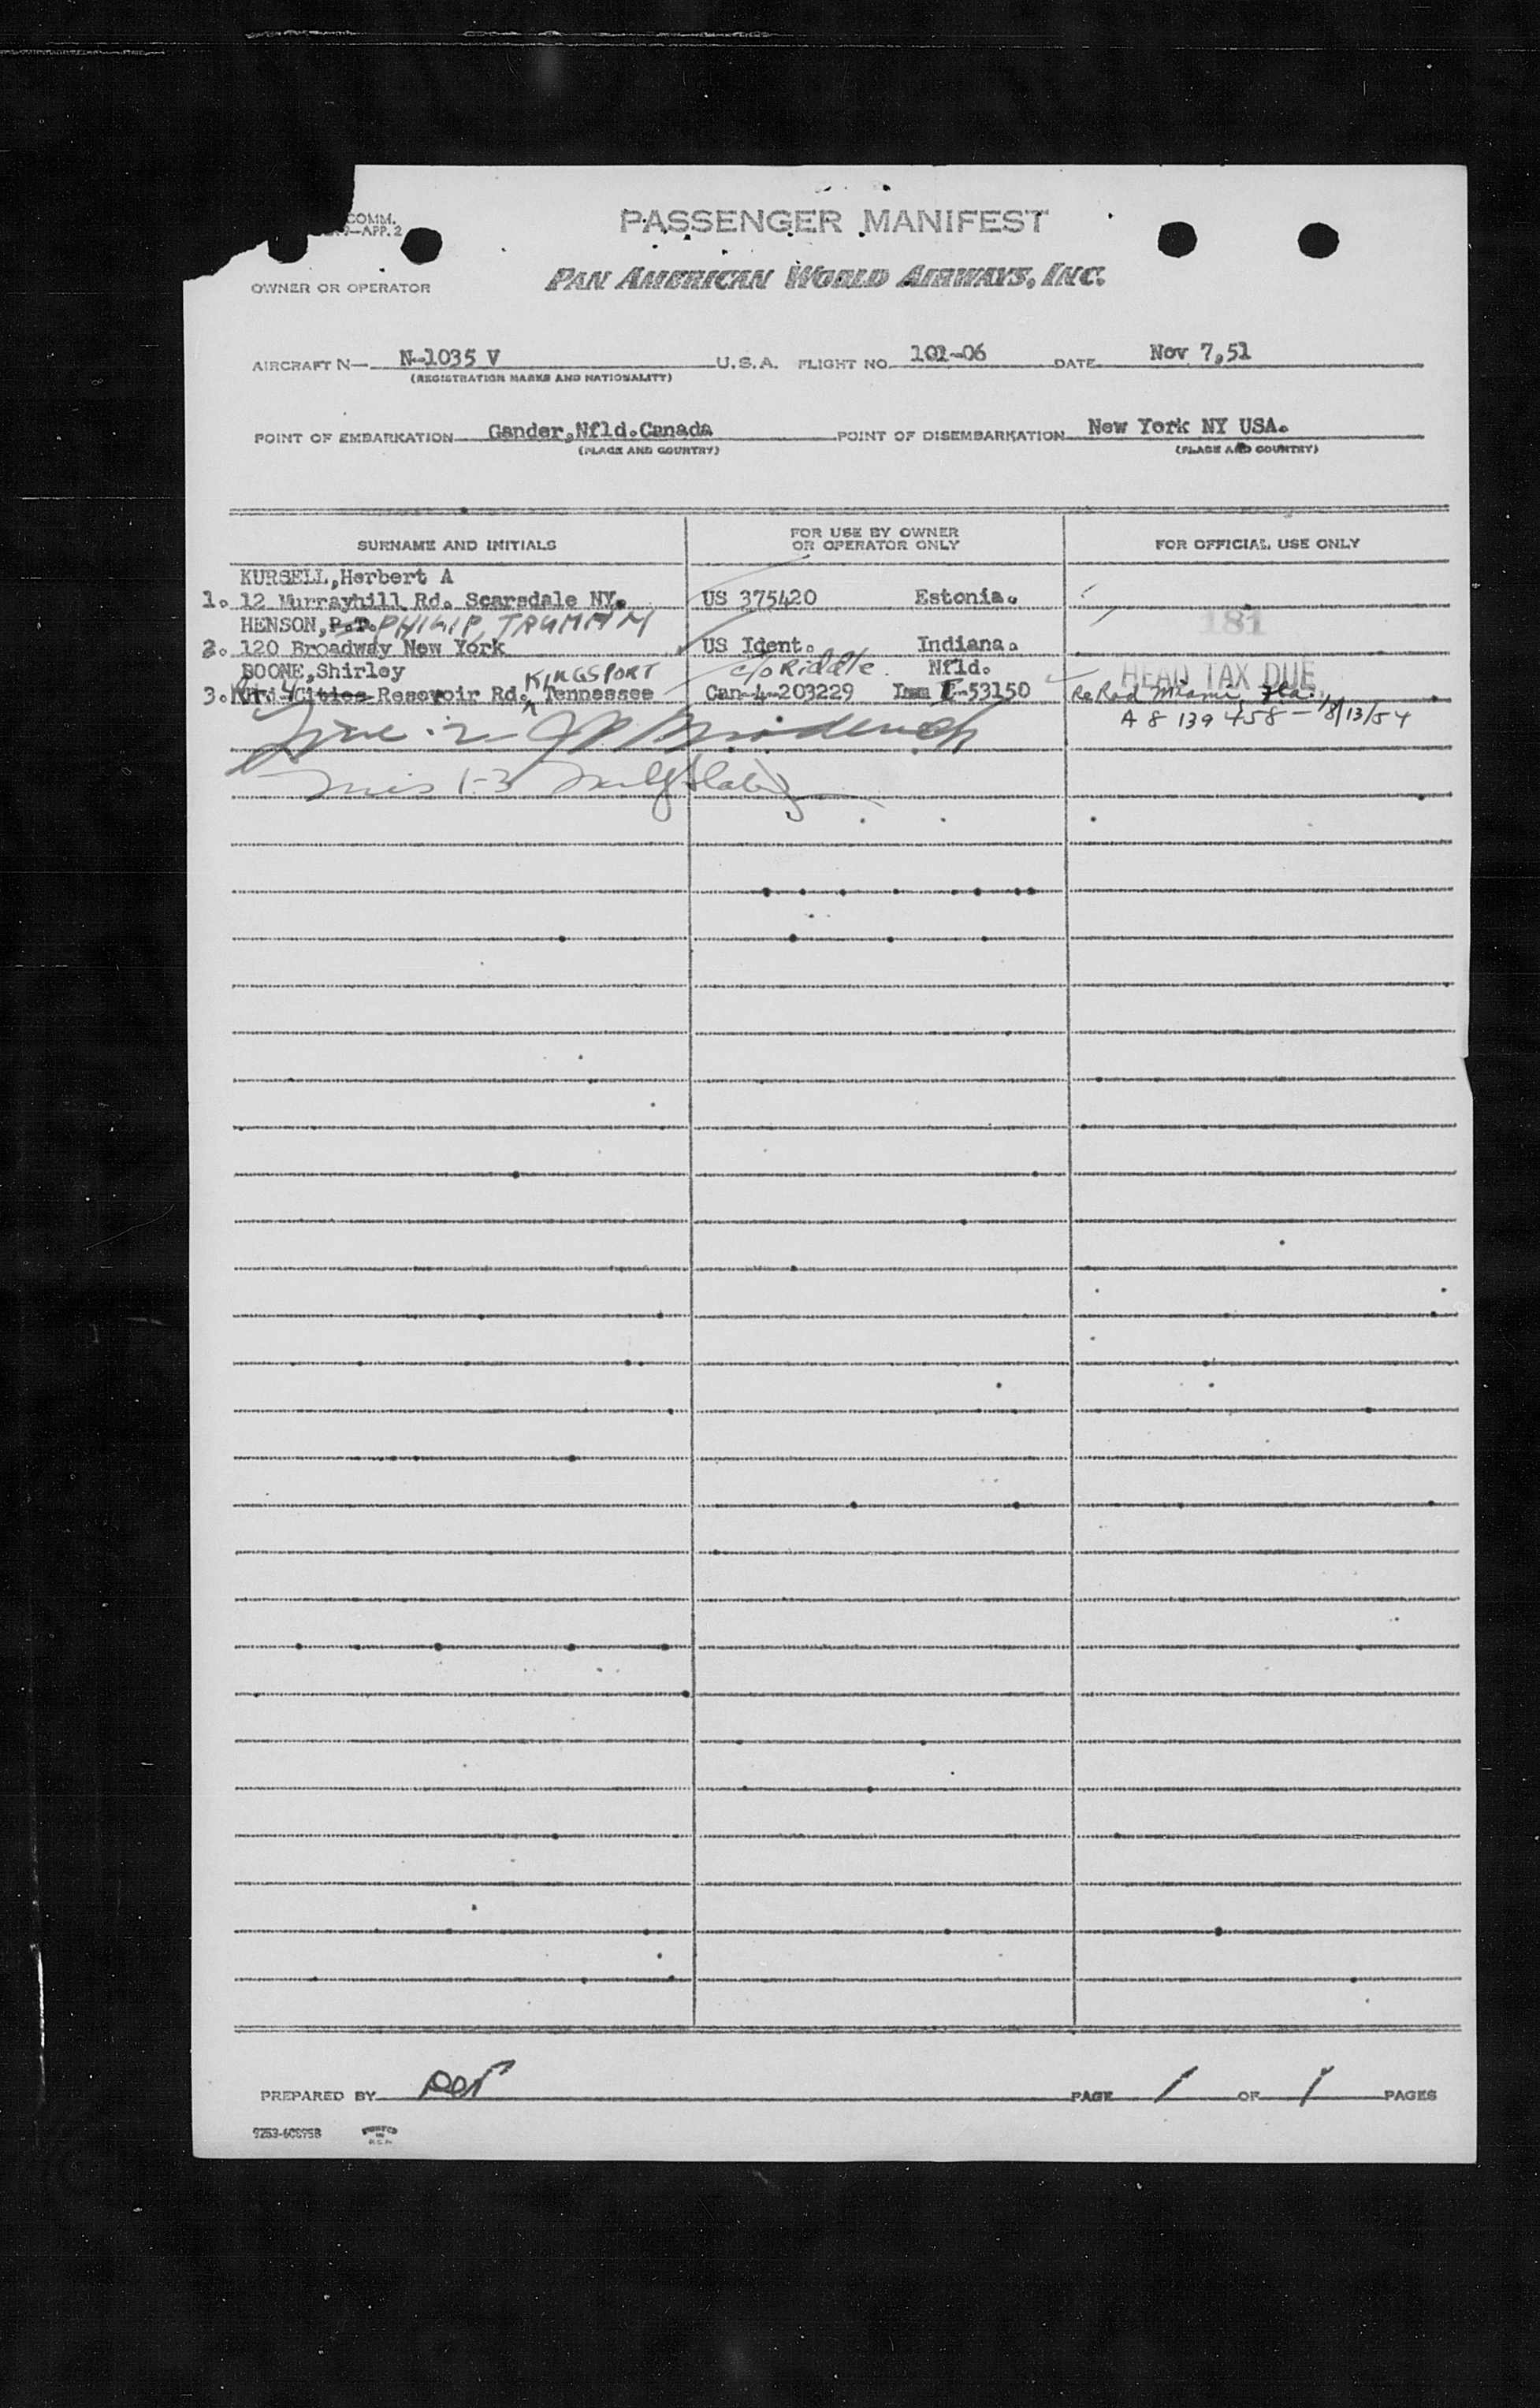 COMM.
9—APP. 2
PASSENGER MANIFEST
PAN AMERICAN WORLD AIRWAYS, INC.
OWNER OR OPERATOR
AIRCRAFT N— N-1035 V U.S.A. FLIGHT NO. 101-06 DATE Nov 7,51
(REGISTRATION MARKS AND NATIONALITY)
POINT OF EMBARKATION Gander,Nfld.Canada POINT OF DISEMBARKATION New York NY USA.
(PLACE AND COUNTRY) (PLACE AND COUNTRY)
SURNAME AND INITIALS FOR USE BY OWNER OR OPERATOR ONLY FOR OFFICIAL USE ONLY
KURSELL,Herbert A
1. 12 Murrayhill Rd. Scarsdale NY. US 375420 Estonia.
HENSON,P.T. PHILIP, TRUMAN 181
2. 120 Broadway New York US Ident. Indiana.
BOONE,Shirley KINGSPORT c/o Riddle. Nfld. HEAD TAX DUE
3. Rt. 4 Cities Resevoir Rd. Tennessee Can-4-203229 Imm -53150 Re Rad Miami, Fla.
A 8 139 458 — 8/13/54
Line 2
1-3
PREPARED BY PAGE 1 OF 1 PAGES
PRINTED IN U.S.A.